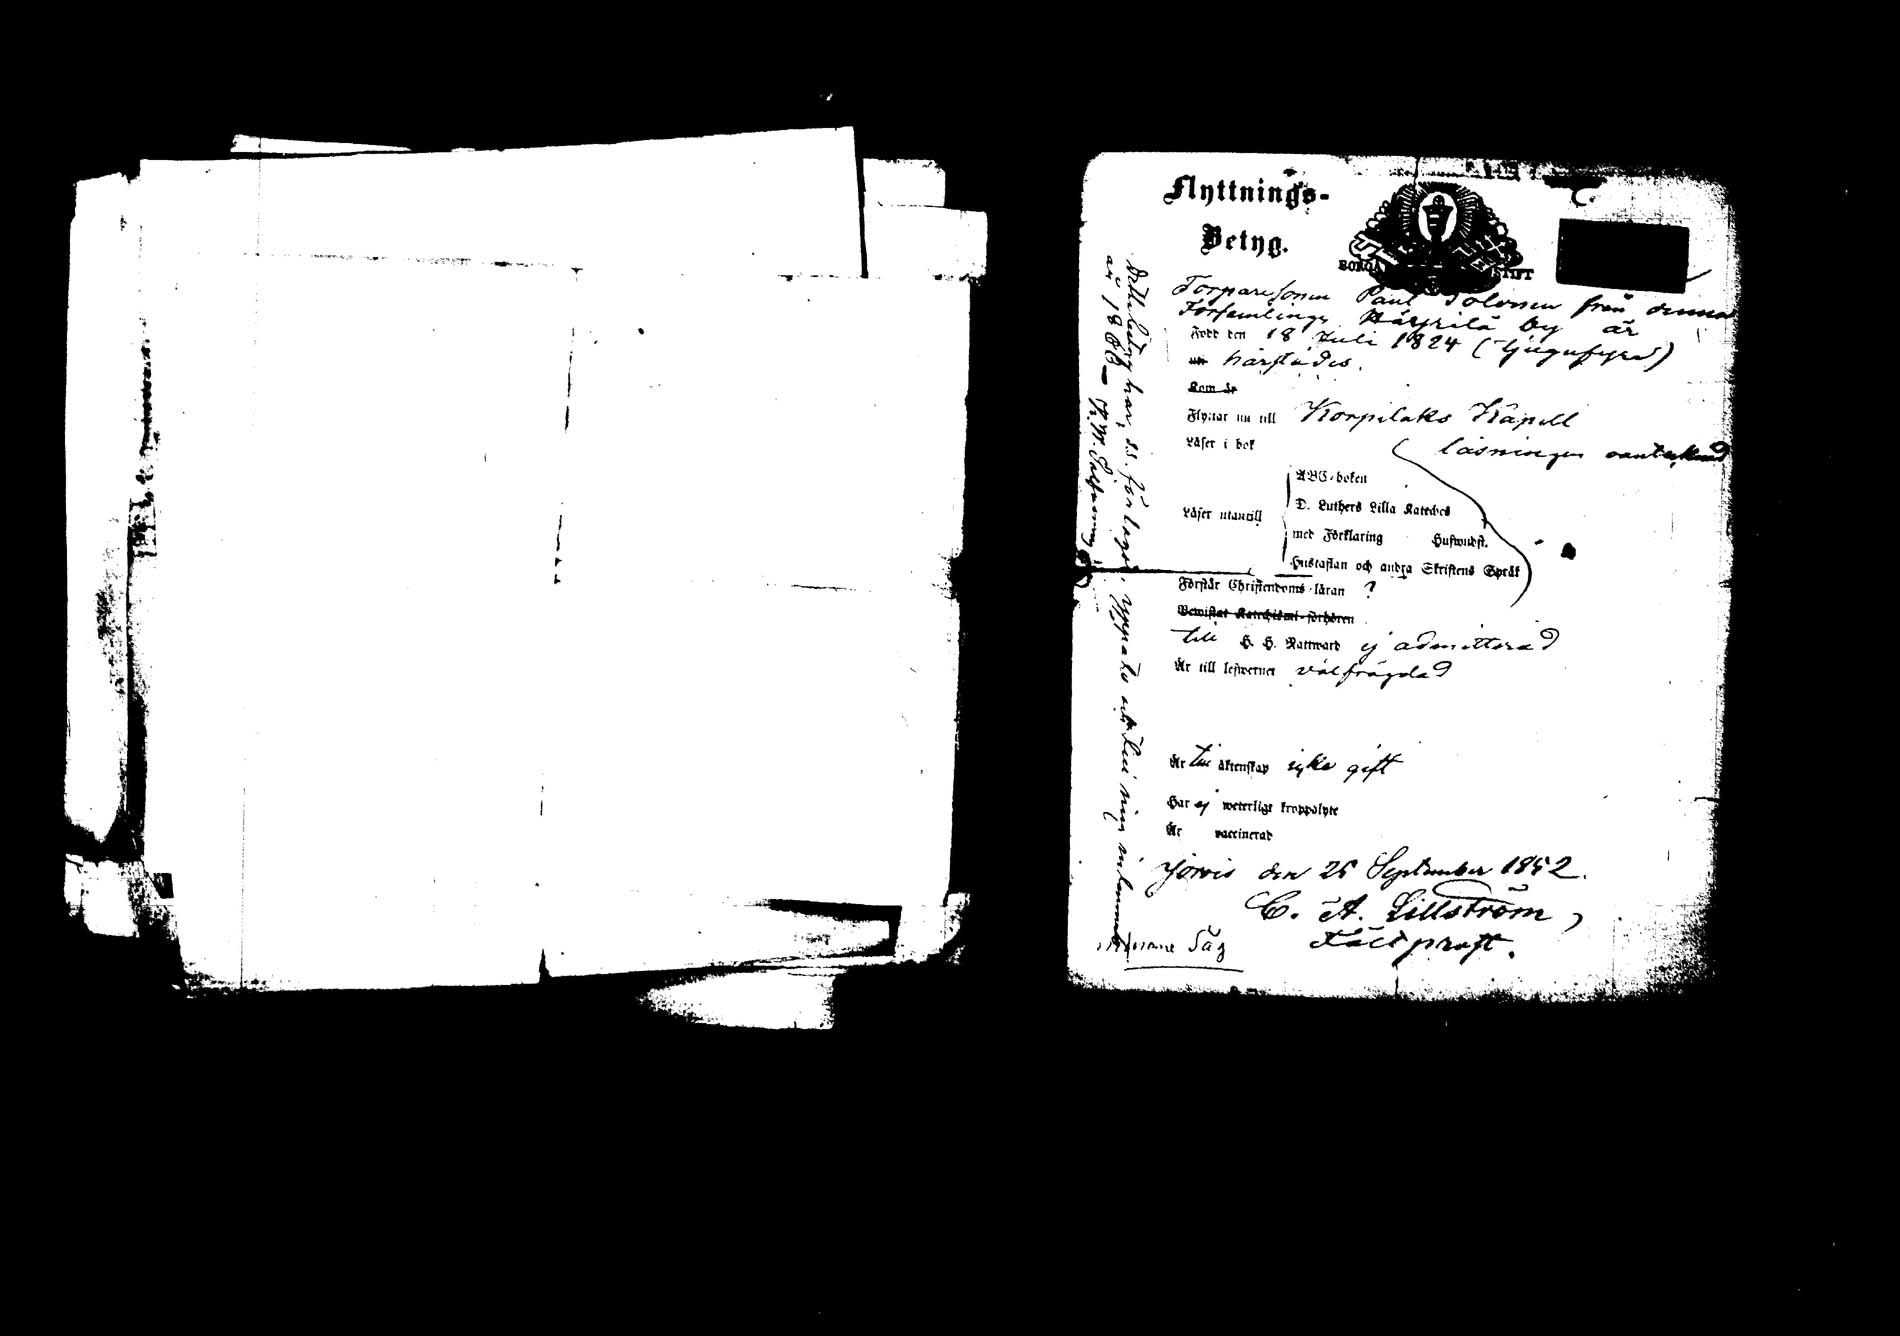 Flyttnings-
Betyg.
BORGÅ STIFT
Torparesonen Paul Tolvonen från denna
Församlings Härjrilä by är
Född den 18 Juli 1824 (tjugufyra)
härstädes.
Kom år
Flyttar nu till Korpilaks Kapell
Läser i bok läsningen
ABC-boken
D. Luthers Lilla Kateches
Läser utantill
med Förklaring Huswudst.
Hustaflan och andra Skriftens Språk
Förstår Christendoms-läran ?
Bewistat Katechismi-förhören
till H. H. Nattward ej admitterad
Är till lefwernet välfrägdad
Är till äktenskap icke gift
Har ej weterligt kroppslyte
Är vaccinerad
Jorois den 25 September 1852.
C. A. Lillström,
Fältprost.
Detta betyg har, s.s. förlagdt, uppgifts
år 186